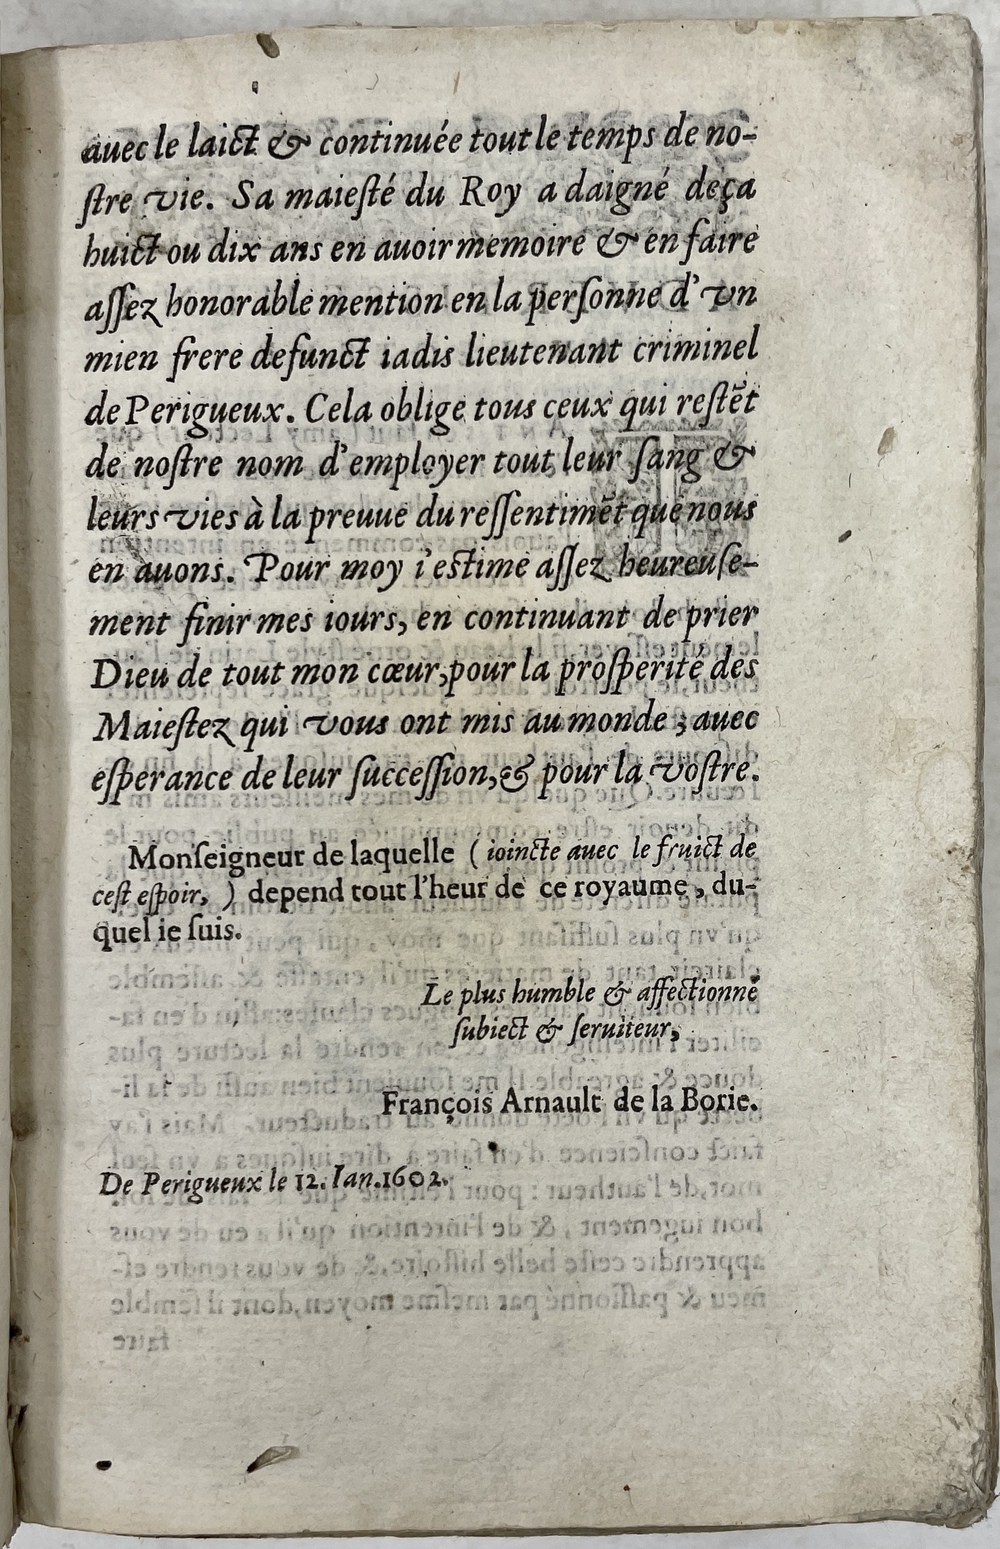 auec le laict & continuée tout le temps de no-
ſtre vie. Sa maieſté du Roy a daigné deça
huict ou dix ans en auoir memoire & en faire
aſſez honorable mention en la perſonne d'vn
mien frere defunct iadis lieutenant criminel
de Perigueux. Cela oblige tous ceux qui reſtẽt
de noſtre nom d'employer tout leur ſang &
leurs vies à la preuue du reſſentimẽt que nous
en auons. Pour moy i'eſtime aſſez heureuſe-
ment finir mes iours, en continuant de prier
Dieu de tout mon cœur, pour la proſperité des
Maieſtez qui vous ont mis au monde ; auec
eſperance de leur ſucceſſion, & pour la voſtre.
Monſeigneur de laquelle ( ioincte auec le fruict de
ceſt eſpoir, ) depend tout l'heur de ce royaume, du-
quel ie ſuis.
Le plus humble & affectionné
ſubiect & ſeruiteur,
François Arnault de la Borie.
De Perigueux le 12. Ian. 1602.